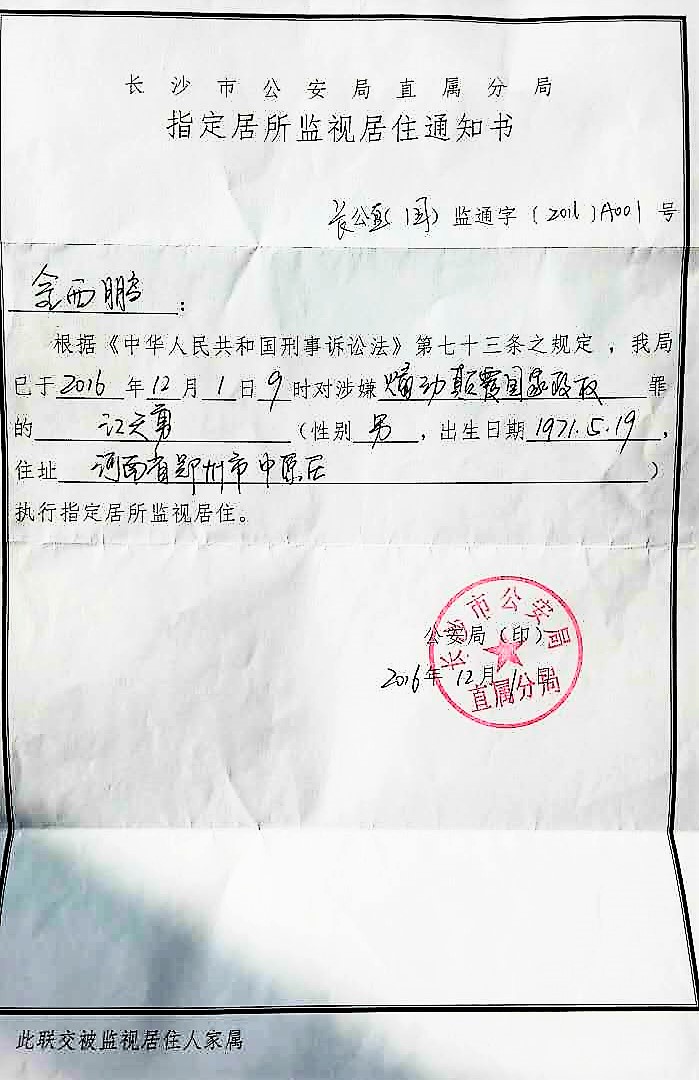 长沙市公安局直属分局
指定居所监视居住通知书
长公直(国)监通字〔2016〕A001号
金西鹏:
根据《中华人民共和国刑事诉讼法》第七十三条之规定,我局
已于2016年12月1日9时对涉嫌煽动颠覆国家政权罪
的江天勇(性别男,出生日期1971.5.19,
住址河南省郑州市中原区)
执行指定居所监视居住。
长沙市公安局
公安局(印)
2016年12月1日
直属分局
此联交被监视居住人家属